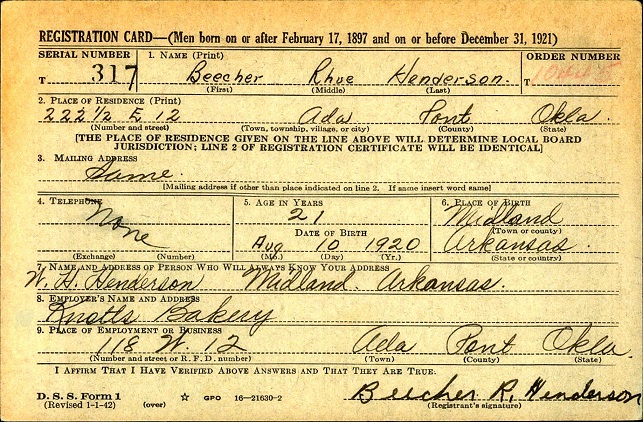 REGISTRATION CARD—(Men born on or after February 17, 1897 and on or before December 31, 1921)
SERIAL NUMBER 1. NAME (Print) ORDER NUMBER
T 317 Beecher Rhue Henderson. T
(First) (Middle) (Last)
2. PLACE OF RESIDENCE (Print)
222 1/2 E 12 Ada Pont Okla.
(Number and street) (Town, township, village, or city) (County) (State)
[THE PLACE OF RESIDENCE GIVEN ON THE LINE ABOVE WILL DETERMINE LOCAL BOARD
JURISDICTION; LINE 2 OF REGISTRATION CERTIFICATE WILL BE IDENTICAL]
3. MAILING ADDRESS
Same.
[Mailing address if other than place indicated on line 2. If same insert word same]
4. TELEPHONE 5. AGE IN YEARS 6. PLACE OF BIRTH
None 21 Midland
DATE OF BIRTH (Town or county)
Aug 10 1920 Arkansas.
(Exchange) (Number) (Mo.) (Day) (Yr.) (State or country)
7. NAME AND ADDRESS OF PERSON WHO WILL ALWAYS KNOW YOUR ADDRESS
W. H. Henderson Midland. Arkansas.
8. EMPLOYER'S NAME AND ADDRESS
Knotts Bakery
9. PLACE OF EMPLOYMENT OR BUSINESS
118 W. 12 Ada Pont Okla.
(Number and street or R. F. D. number) (Town) (County) (State)
I AFFIRM THAT I HAVE VERIFIED ABOVE ANSWERS AND THAT THEY ARE TRUE.
D. S. S. Form 1 Beecher R. Henderson
(Revised 1-1-42) (over) ☆ GPO 16—21630-2 (Registrant's signature)